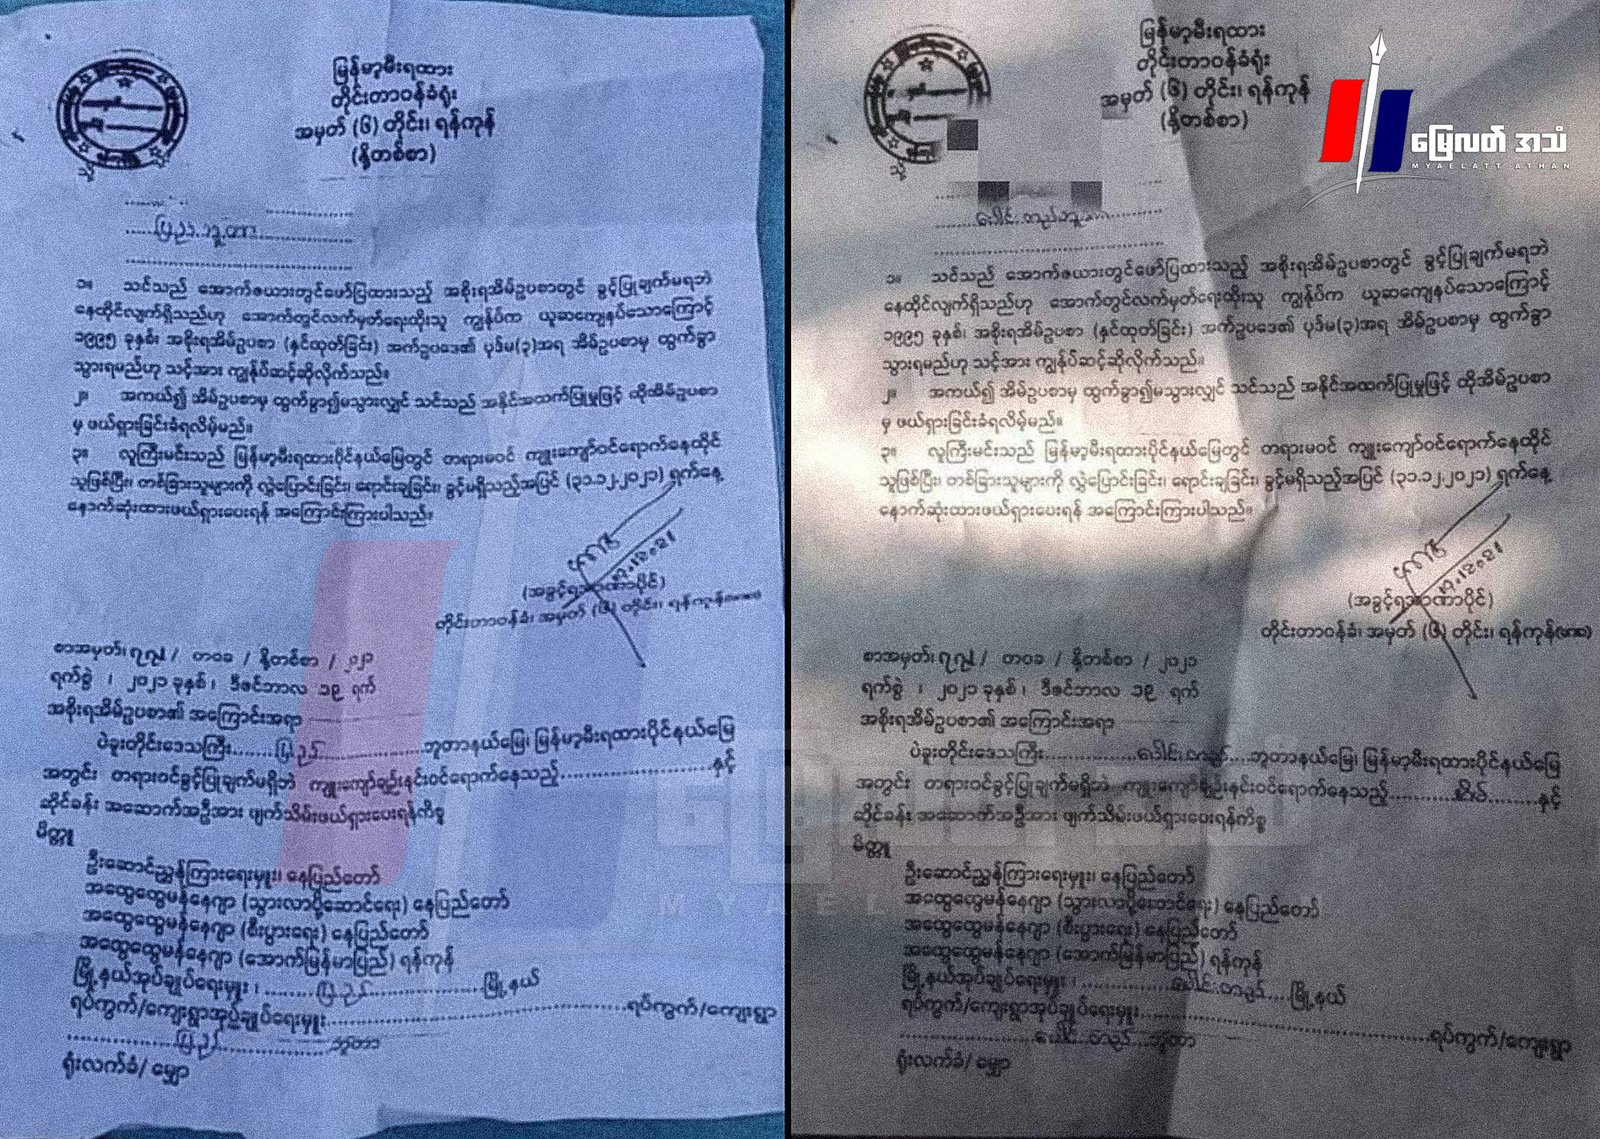 မြန်မာ့မီးရထား
တိုင်းတာဝန်ခံရုံး
အမှတ် (၆) တိုင်း၊ ရန်ကုန်
(နို့တစ်စာ)
သို့
ပြည်ဘူတာ
၁။ သင်သည် အောက်ဇယားတွင်ဖော်ပြထားသည့် အစိုးရအိမ်ဥပစာတွင် ခွင့်ပြုချက်မရဘဲ
နေထိုင်လျက်ရှိသည်ဟု အောက်တွင်လက်မှတ်ရေးထိုးသူ ကျွန်ုပ်က ယူဆကျေနပ်သောကြောင့်
၁၉၉၅ ခုနှစ်၊ အစိုးရအိမ်ဥပစာ (နှင်ထုတ်ခြင်း) အက်ဥပဒေ၏ ပုဒ်မ(၃)အရ အိမ်ဥပစာမှ ထွက်ခွာ
သွားရမည်ဟု သင့်အား ကျွန်ုပ်ဆင့်ဆိုလိုက်သည်။
၂။ အကယ်၍ အိမ်ဥပစာမှ ထွက်ခွာ၍မသွားလျှင် သင်သည် အနိုင်အထက်ပြုမှုဖြင့် ထိုအိမ်ဥပစာ
မှ ဖယ်ရှားခြင်းခံရလိမ့်မည်။
၃။ လူကြီးမင်းသည် မြန်မာ့မီးရထားပိုင်နယ်မြေတွင် တရားမဝင် ကျူးကျော်ဝင်ရောက်နေထိုင်
သူဖြစ်ပြီး၊ တစ်ခြားသူများကို လွှဲပြောင်းခြင်း၊ ရောင်းချခြင်း၊ ခွင့်မရှိသည့်အပြင် (၃၁.၁၂.၂၀၂၁) ရက်နေ့
နောက်ဆုံးထားဖယ်ရှားပေးရန် အကြောင်းကြားပါသည်။
(အခွင့်ရအာဏာပိုင်)
တိုင်းတာဝန်ခံ၊ အမှတ် (၆) တိုင်း၊ ရန်ကုန်
စာအမှတ်၊ / တ၀ခ / နို့တစ်စာ / ၂၀၂၁
ရက်စွဲ ၊ ၂၀၂၁ ခုနှစ် ၊ ဒီဇင်ဘာလ ၁၉ ရက်
အစိုးရအိမ်ဥပစာ၏ အကြောင်းအရာ
ပဲခူးတိုင်းဒေသကြီး........ပြည်........ဘူတာနယ်မြေ၊ မြန်မာ့မီးရထားပိုင်နယ်မြေ
အတွင်း တရားဝင်ခွင့်ပြုချက်မရှိဘဲ ကျူးကျော်စည်းနင်းဝင်ရောက်နေသည့်........နှင့်
ဆိုင်ခန်း အဆောက်အဦအား ဖျက်သိမ်းဖယ်ရှားပေးရန်ကိစ္စ
မိတ္တူ
ဦးဆောင်ညွှန်ကြားရေးမှူး၊ နေပြည်တော်
အထွေထွေမန်နေဂျာ (သွားလာပို့ဆောင်ရေး) နေပြည်တော်
အထွေထွေမန်နေဂျာ (စီးပွားရေး) နေပြည်တော်
အထွေထွေမန်နေဂျာ (အောက်မြန်မာပြည်) ရန်ကုန်
မြို့နယ်အုပ်ချုပ်ရေးမှူး ၊ ........ပြည်........မြို့နယ်
ရပ်ကွက်/ကျေးရွာအုပ်ချုပ်ရေးမှူး........ရပ်ကွက်/ကျေးရွာ
........ပြည်........ဘူတာ
ရုံးလက်ခံ/ မျှော
မြန်မာ့မီးရထား
တိုင်းတာဝန်ခံရုံး
အမှတ် (၆) တိုင်း၊ ရန်ကုန်
(နို့တစ်စာ)
မြေလတ် အသံ
MYAELATT ATHAN
သို့
၁။ သင်သည် အောက်ဇယားတွင်ဖော်ပြထားသည့် အစိုးရအိမ်ဥပစာတွင် ခွင့်ပြုချက်မရဘဲ
နေထိုင်လျက်ရှိသည်ဟု အောက်တွင်လက်မှတ်ရေးထိုးသူ ကျွန်ုပ်က ယူဆကျေနပ်သောကြောင့်
၁၉၉၅ ခုနှစ်၊ အစိုးရအိမ်ဥပစာ (နှင်ထုတ်ခြင်း) အက်ဥပဒေ၏ ပုဒ်မ(၃)အရ အိမ်ဥပစာမှ ထွက်ခွာ
သွားရမည်ဟု သင့်အား ကျွန်ုပ်ဆင့်ဆိုလိုက်သည်။
၂။ အကယ်၍ အိမ်ဥပစာမှ ထွက်ခွာ၍မသွားလျှင် သင်သည် အနိုင်အထက်ပြုမှုဖြင့် ထိုအိမ်ဥပစာ
မှ ဖယ်ရှားခြင်းခံရလိမ့်မည်။
၃။ လူကြီးမင်းသည် မြန်မာ့မီးရထားပိုင်နယ်မြေတွင် တရားမဝင် ကျူးကျော်ဝင်ရောက်နေထိုင်
သူဖြစ်ပြီး၊ တစ်ခြားသူများကို လွှဲပြောင်းခြင်း၊ ရောင်းချခြင်း၊ ခွင့်မရှိသည့်အပြင် (၃၁.၁၂.၂၀၂၁) ရက်နေ့
နောက်ဆုံးထားဖယ်ရှားပေးရန် အကြောင်းကြားပါသည်။
(အခွင့်ရအာဏာပိုင်)
တိုင်းတာဝန်ခံ၊ အမှတ် (၆) တိုင်း၊ ရန်ကုန်
စာအမှတ်၊ / တ၀ခ / နို့တစ်စာ / ၂၀၂၁
ရက်စွဲ ၊ ၂၀၂၁ ခုနှစ် ၊ ဒီဇင်ဘာလ ၁၉ ရက်
အစိုးရအိမ်ဥပစာ၏ အကြောင်းအရာ
ပဲခူးတိုင်းဒေသကြီး........ဘူတာနယ်မြေ၊ မြန်မာ့မီးရထားပိုင်နယ်မြေ
အတွင်း တရားဝင်ခွင့်ပြုချက်မရှိဘဲ ကျူးကျော်စည်းနင်းဝင်ရောက်နေသည့်........နှင့်
ဆိုင်ခန်း အဆောက်အဦအား ဖျက်သိမ်းဖယ်ရှားပေးရန်ကိစ္စ
မိတ္တူ
ဦးဆောင်ညွှန်ကြားရေးမှူး၊ နေပြည်တော်
အထွေထွေမန်နေဂျာ (သွားလာပို့ဆောင်ရေး) နေပြည်တော်
အထွေထွေမန်နေဂျာ (စီးပွားရေး) နေပြည်တော်
အထွေထွေမန်နေဂျာ (အောက်မြန်မာပြည်) ရန်ကုန်
မြို့နယ်အုပ်ချုပ်ရေးမှူး ၊ ........မြို့နယ်
ရပ်ကွက်/ကျေးရွာအုပ်ချုပ်ရေးမှူး........ရပ်ကွက်/ကျေးရွာ
........ဘူတာ
ရုံးလက်ခံ/ မျှော